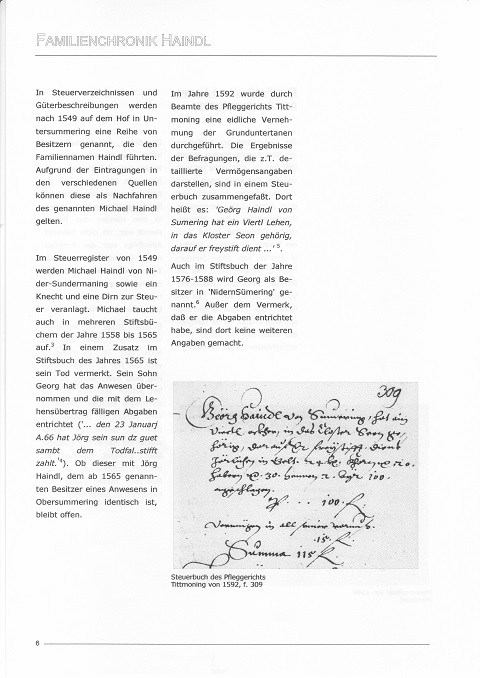 FAMILIENCHRONIK HAINDL
In Steuerverzeichnissen und
Güterbeschreibungen werden
nach 1549 auf dem Hof in Un-
tersummering eine Reihe von
Besitzern genannt, die den
Familiennamen Haindl führten.
Aufgrund der Eintragungen in
den verschiedenen Quellen
können diese als Nachfahren
des genannten Michael Haindl
gelten.
Im Steuerregister von 1549
werden Michael Haindl von Ni-
der-Sundermaning sowie ein
Knecht und eine Dirn zur Steu-
er veranlagt. Michael taucht
auch in mehreren Stiftsbü-
chern der Jahre 1558 bis 1565
auf.³ In einem Zusatz im
Stiftsbuch des Jahres 1565 ist
sein Tod vermerkt. Sein Sohn
Georg hat das Anwesen über-
nommen und die mit dem Le-
hensübertrag fälligen Abgaben
entrichtet ('... den 23 Januarj
A.66 hat Jörg sein sun dz guet
sambt dem Todfal..stifft
zahlt.'⁴). Ob dieser mit Jörg
Haindl, dem ab 1565 genann-
ten Besitzer eines Anwesens in
Obersummering identisch ist,
bleibt offen.
Im Jahre 1592 wurde durch
Beamte des Pfleggerichts Titt-
moning eine eidliche Verneh-
mung der Grunduntertanen
durchgeführt. Die Ergebnisse
der Befragungen, die z.T. de-
taillierte Vermögensangaben
darstellen, sind in einem Steu-
erbuch zusammengefaßt. Dort
heißt es: 'Geörg Haindl von
Sumering hat ein Viertl Lehen,
in das Kloster Seon gehörig,
darauf er freystift dient ...' ⁵.
Auch im Stiftsbuch der Jahre
1576-1588 wird Georg als Be-
sitzer in 'NidernSümering' ge-
nannt.⁶ Außer dem Vermerk,
daß er die Abgaben entrichtet
habe, sind dort keine weiteren
Angaben gemacht.
309
Geörg Haindl von Sumering, hat ain
100.
100
15
Summa 115
Steuerbuch des Pfleggerichts
Tittmoning von 1592, f. 309
6